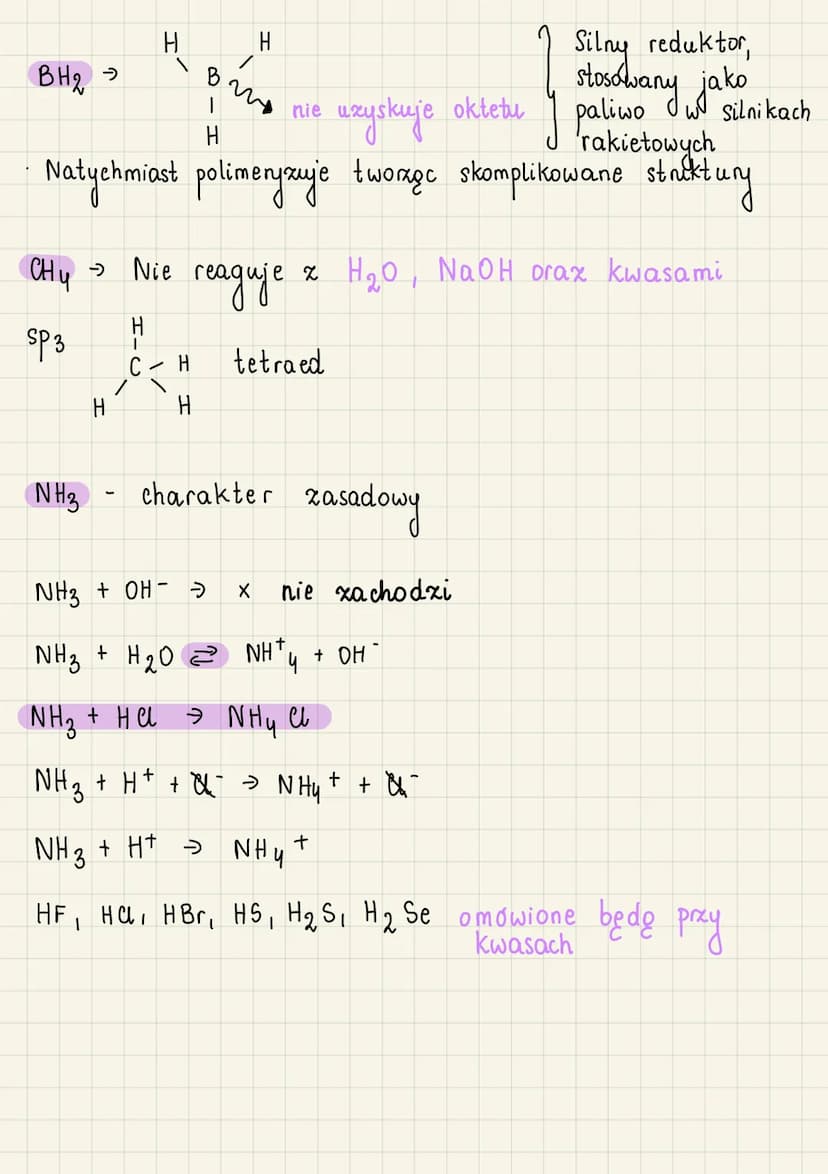 H H
BH₂ → B
nie uzyskuje oktetu
H
Silny reduktor,
stosowany jako
paliwo w silnikach
rakietowych
· Natychmiast polimeryzuje tworząc skomplikowane struktury
CH₄ → Nie reaguje z H₂O, NaOH oraz kwasami
sp3
H
C - H tetraed
H H
NH₃ - charakter zasadowy
NH₃ + OH⁻ → x nie zachodzi
NH₃ + H₂O ⇄ NH⁺₄ + OH⁻
NH₃ + HCl → NH₄Cl
NH₃ + H⁺ + Cl⁻ → NH₄⁺ + Cl⁻
NH₃ + H⁺ → NH₄⁺
HF, HCl, HBr, HS, H₂S, H₂Se omówione będę przy
kwasach